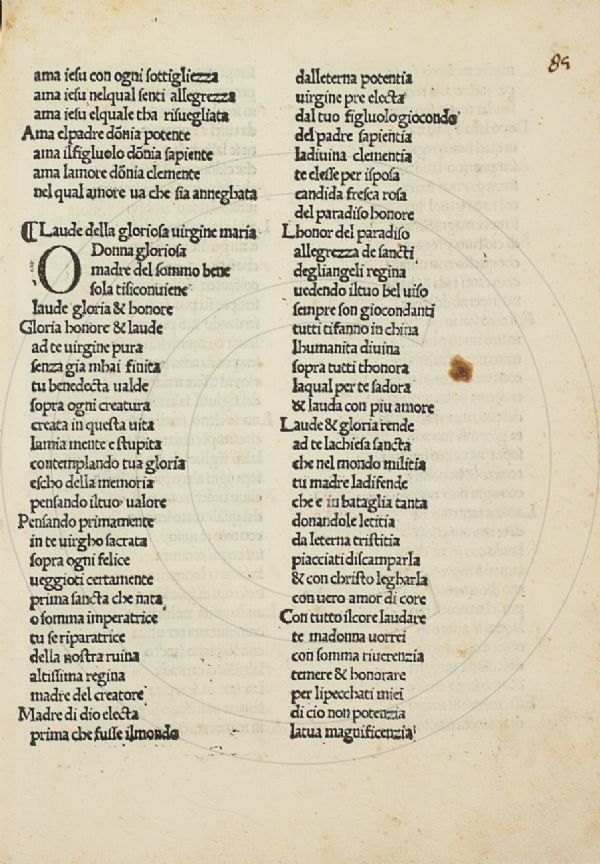 85
ama iesu con ogni sottigliezza
ama iesu nelqual senti allegrezza
ama iesu elquale tha risuegliata
Ama elpadre dõnia potente
ama ilfigluolo dõnia sapiente
ama lamore dõnia clemente
nel qual amore ua che sia anneghata
⸿ Laude della gloriosa uirgine maria
O Donna gloriosa
madre del sommo bene
sola tisiconuiene
laude gloria & honore
Gloria honore & laude
ad te uirgine pura
senza gia mhai finita
tu benedecta ualde
sopra ogni creatura
creata in questa uita
lamia mente e stupita
contemplando tua gloria
escho della memoria
pensando iltuo ualore
Pensando primamente
in te uirgho sacrata
sopra ogni felice
ueggioti certamente
prima sancta che nata
o somma imperatrice
tu se riparatrice
della nostra ruina
altissima regina
madre del creatore
Madre di dio electa
prima che fusse ilmondo
dalleterna potentia
uirgine pre electa
dal tuo figluolo giocondo
del padre sapientia
ladiuina clementia
te elesse per isposa
candida fresca rosa
del paradiso honore
Lhonor del paradiso
allegrezza de sancti
degliangeli regina
uedendo iltuo bel uiso
sempre son giocondanti
tutti tifanno inchina
lhumanita diuina
sopra tutti thonora
laqual per te sadora
& lauda con piu amore
Laude & gloria rende
ad te lachiesa sancta
che nel mondo militia
tu madre ladifende
che e in bataglia tanta
donandole letitia
da leterna tristitia
piacciati discamparla
& con christo legharla
con uero amor di core
Con tutto ilcore laudare
te madonna uorrei
con somma riuerenzia
temere & honorare
per lipecchati miei
di cio non potenzia
latua magnificenzia